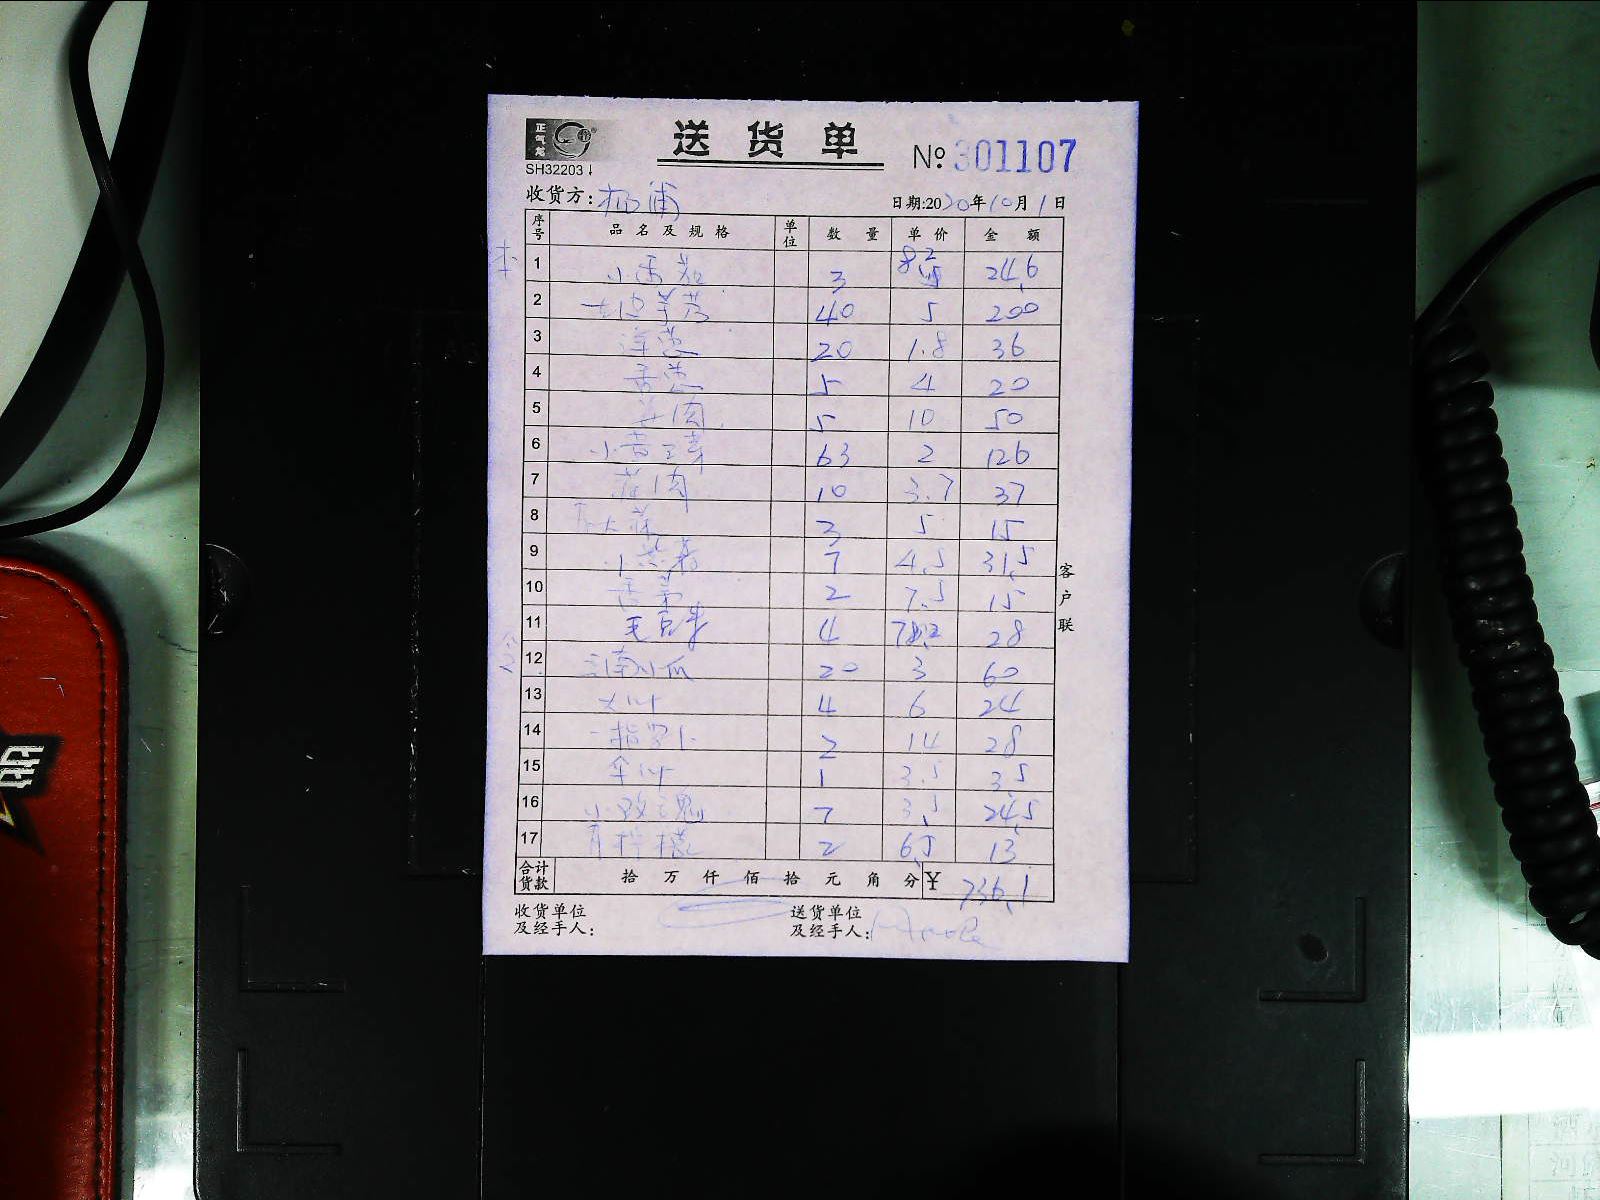 正气龙
送货单
№ 301107
SH32203
收货方: 杨浦
日期:2020年10月1日
序号 品名及规格 单位 数量 单价 金额
1 小番茄 3 8.2 24.6
2 大皮芽 40 5 200
3 洋葱 20 1.8 36
4 香葱 5 4 20
5 肉 5 10 50
6 小黄豆芽 63 2 126
7 肉 10 3.7 37
8 3 5 15
9 小 7 4.5 31.5
10 2 7.5 15
11 毛豆米 4 7 28
12 南小瓜 20 3 60
13 大 4 6 24
14 一指 2 14 28
15 1 3.5 3.5
16 小 7 3.5 24.5
17 青柠檬 2 6.5 13
合计货款 拾万仟佰拾元角分 ¥ 736.1
收货单位及经手人:
送货单位及经手人:
客户联